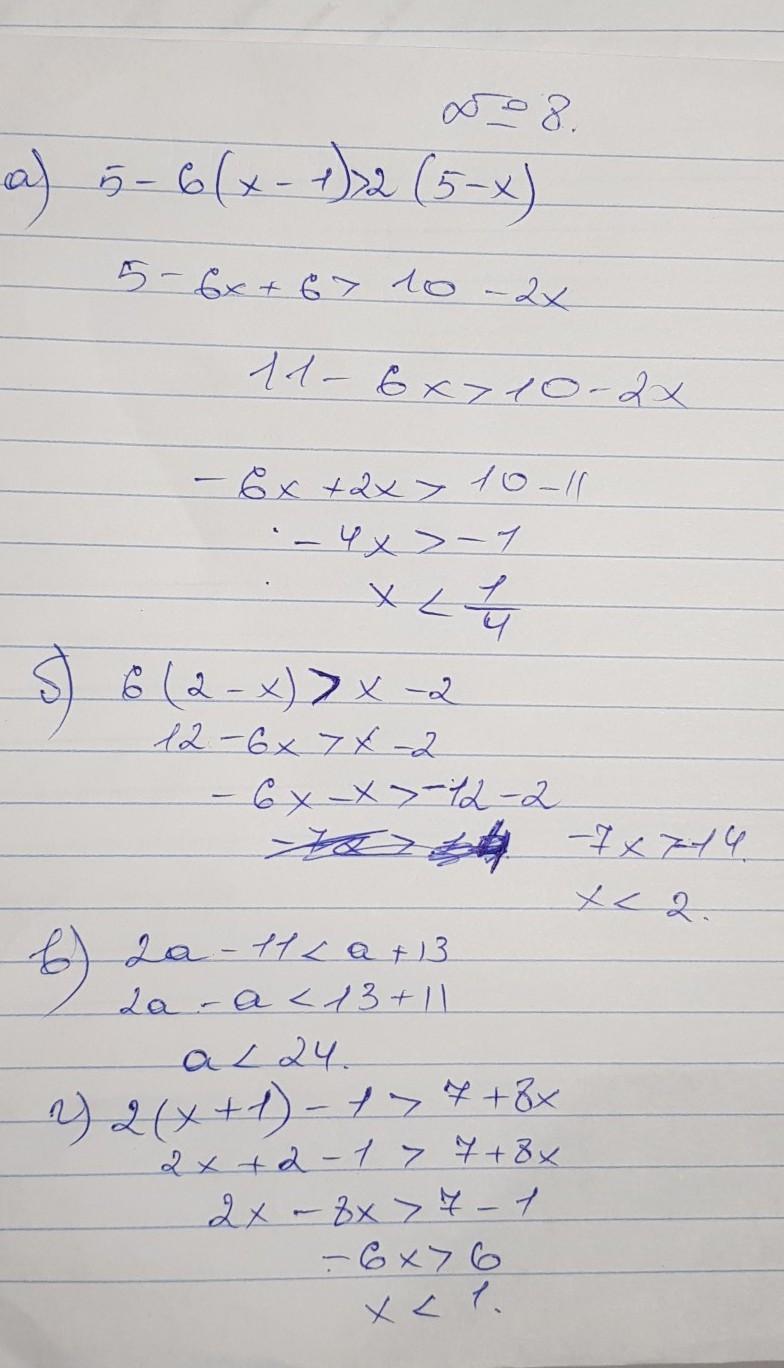 № 8.
а) 5 - 6(x - 1) > 2 (5 - x)
5 - 6x + 6 > 10 - 2x
11 - 6x > 10 - 2x
- 6x + 2x > 10 - 11
- 4x > - 1
x < 1/4
б) 6 (2 - x) > x - 2
12 - 6x > x - 2
- 6x - x > -12 - 2
-7x > -14.
x < 2.
в) 2a - 11 < a + 13
2a - a < 13 + 11
a < 24.
г) 2(x + 1) - 1 > 7 + 8x
2x + 2 - 1 > 7 + 8x
2x - 8x > 7 - 1
- 6x > 6
x < 1.